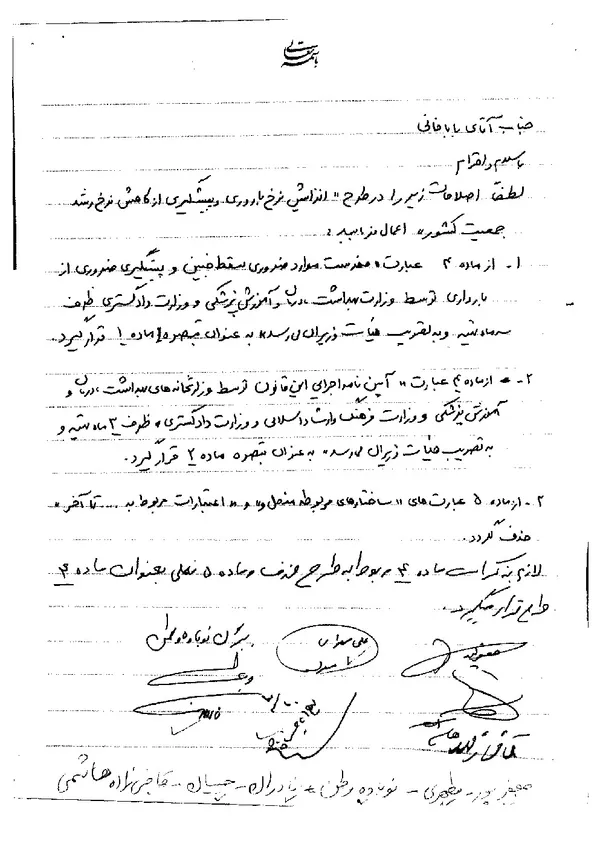 باسمه تعالی
جناب آقای باباخانی
باسلام و احترام
لطفاً اصلاحات زیر را در طرح «افزایش نرخ باروری و پیشگیری از کاهش نرخ رشد
جمعیت کشور» اعمال فرمایید:
۱- از ماده ۴ عبارت «فهرست موارد ضروری سقط جنین و پیشگیری ضروری از
بارداری توسط وزارت بهداشت درمان و آموزش پزشکی و وزارت دادگستری ظرف
سه ماه تهیه و به تصویب هیأت وزیران می رسد» به عنوان تبصره ماده ۱ قرار گیرد.
۲- از ماده ۴ عبارت «آیین نامه اجرایی این قانون توسط وزارتخانه های بهداشت درمان و
آموزش پزشکی و وزارت فرهنگ و ارشاد اسلامی و وزارت دادگستری ظرف ۳ ماه تهیه و
به تصویب هیأت وزیران می رسد» به عنوان تبصره ماده ۲ قرار گیرد.
۳- از ماده ۵ عبارت های «ساختارهای مربوطه منحل و» و «اعتبارات مربوط به ... تا آخر»
حذف گردد.
لازم به ذکر است ماده ۴ مربوط به طرح حذف و ماده ۵ فعلی بعنوان ماده ۴
قرار میگیرد.
نوباوه وطن
جعفرپور - مطهری - نوباوه وطن - - قاضی زاده هاشمی